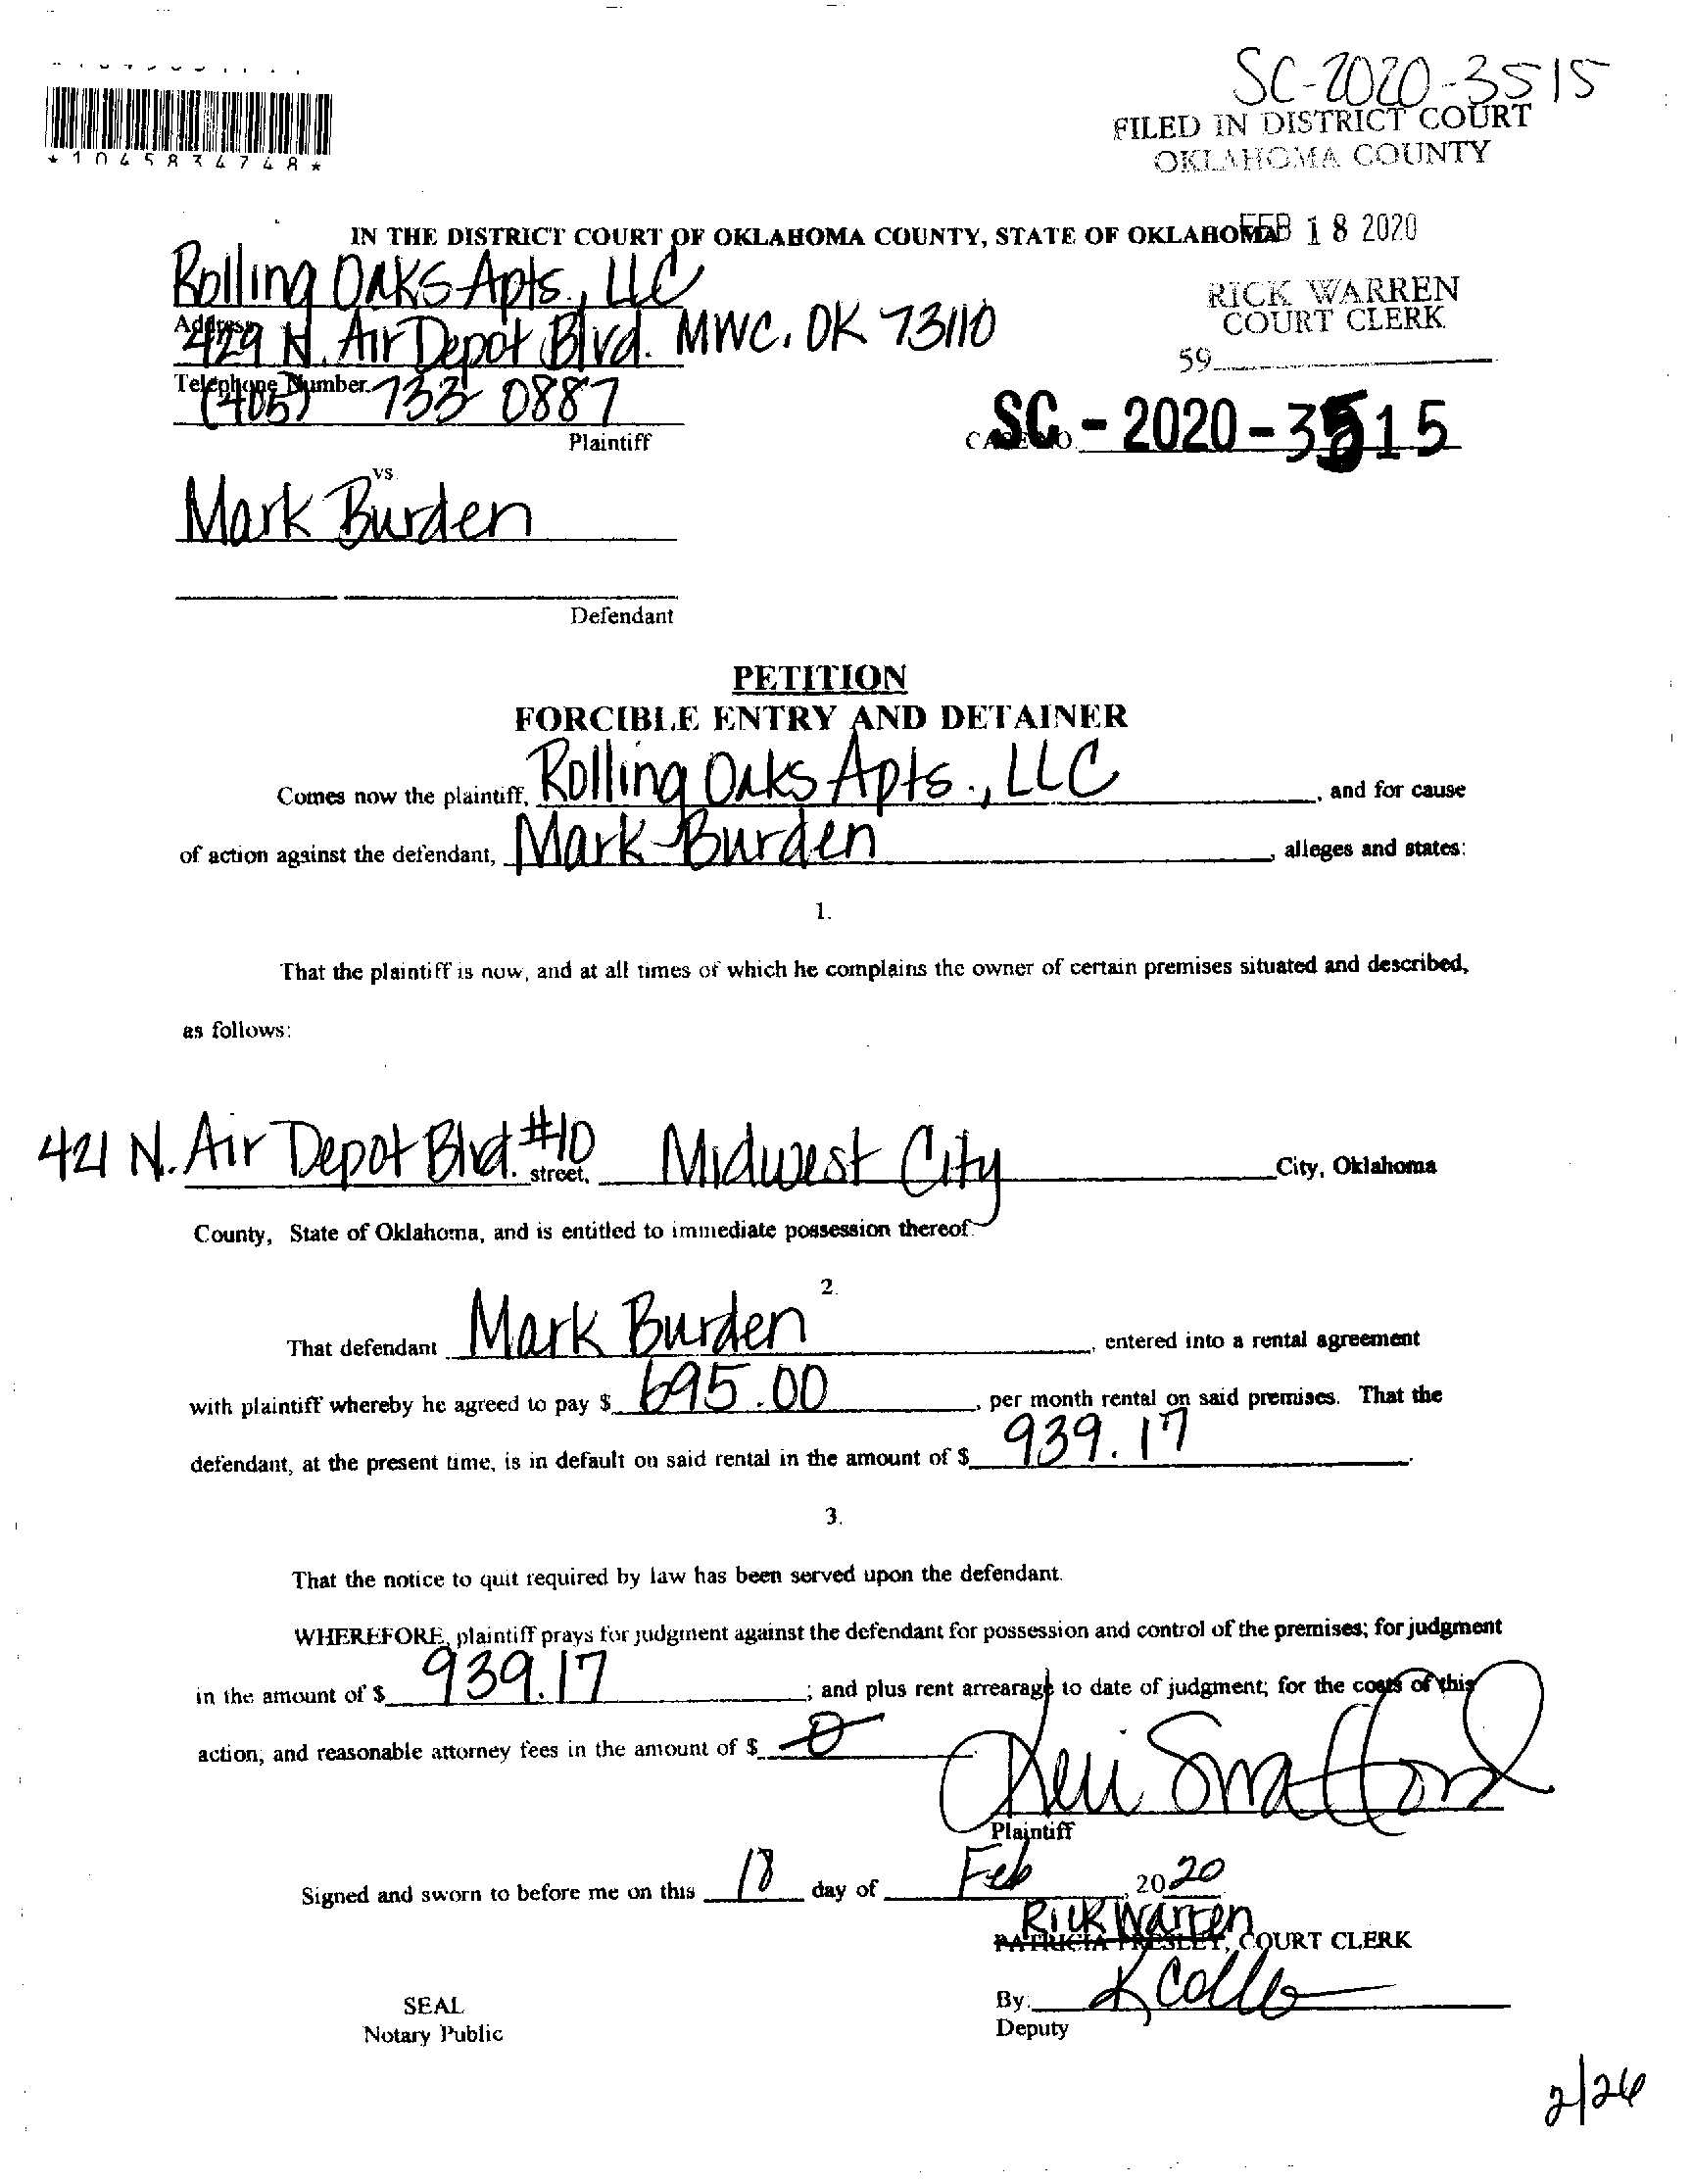 SC-2020-3515
FILED IN DISTRICT COURT
OKLAHOMA COUNTY
*1045834748*
IN THE DISTRICT COURT OF OKLAHOMA COUNTY, STATE OF OKLAHOMA
FEB 18 2020
Rolling Oaks Apts., LLC
RICK WARREN
COURT CLERK
Address
429 N. Air Depot Blvd. MWC, OK 73110
59
Telephone Number
(405) 733 0887
Plaintiff
CASE NO. SC-2020-3515
vs.
Mark Burden
Defendant
PETITION
FORCIBLE ENTRY AND DETAINER
Comes now the plaintiff, Rolling Oaks Apts., LLC, and for cause
of action against the defendant, Mark Burden, alleges and states:
1.
That the plaintiff is now, and at all times of which he complains the owner of certain premises situated and described,
as follows:
421 N. Air Depot Blvd. #10 street, Midwest City City, Oklahoma
County, State of Oklahoma, and is entitled to immediate possession thereof.
2.
That defendant Mark Burden, entered into a rental agreement
with plaintiff whereby he agreed to pay $ 695.00, per month rental on said premises. That the
defendant, at the present time, is in default on said rental in the amount of $ 939.17.
3.
That the notice to quit required by law has been served upon the defendant.
WHEREFORE, plaintiff prays for judgment against the defendant for possession and control of the premises; for judgment
in the amount of $ 939.17; and plus rent arrearage to date of judgment; for the costs of this
action; and reasonable attorney fees in the amount of $ 0.
Plaintiff
Signed and sworn to before me on this 18 day of Feb, 2020
Rick Warren
PATRICIA PRESLEY, COURT CLERK
SEAL
By:
Notary Public
Deputy
2/26